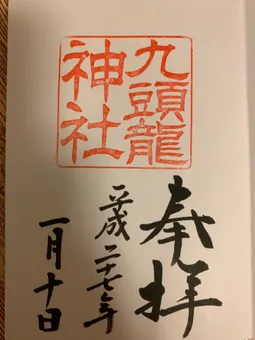 九頭龍
神社
奉拝
平成二十七年
一月十日